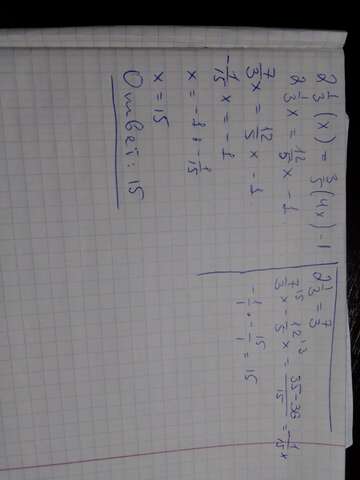 2 1/3 (x) = 3/5 (4x) - 1
2 1/3 x = 12/5 x - 1
7/3 x = 12/5 x - 1
-1/15 x = -1
x = -1 : -1/15
x = 15
Ответ: 15
2 1/3 = 7/3
7/3 x - 12/5 x = 35-36/15 = -1/15 x
-1/1 · -15/1 = 15